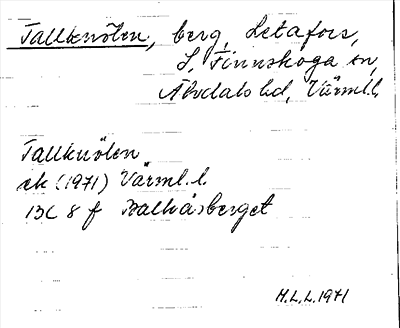 Tallknölen, berg, Letafors,
S. Finnskoga sn,
Älvdals hd, Värml.l.
Tallknölen
ek (1971) Värml.l.
13C 8 f Balkåsberget
M.L.L. 1971